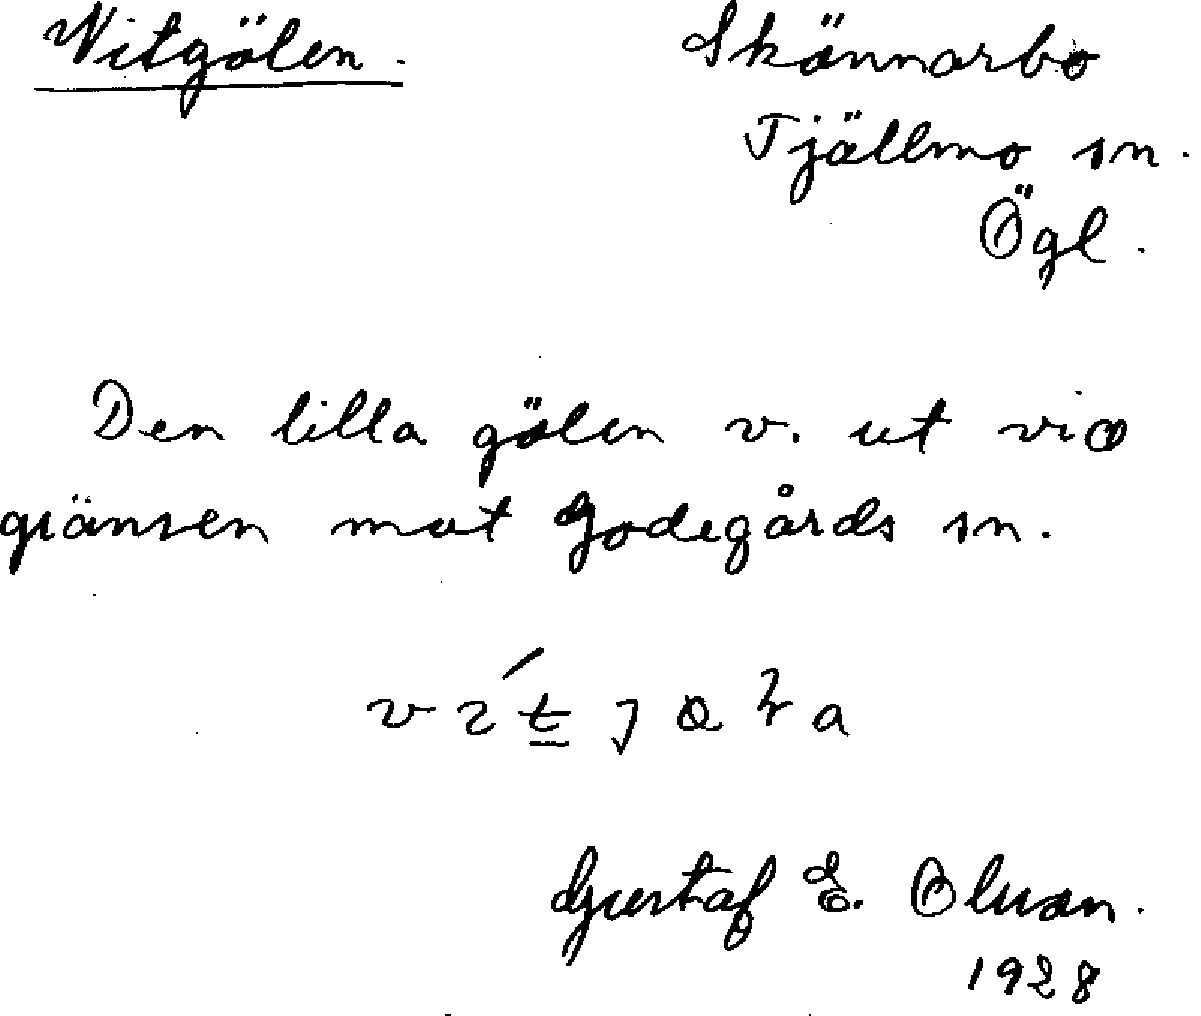 Vitgölen.
Skönnarbo
Tjällmo sn.
Ögl.
Den lilla gölen v. ut vid
gränsen mot Godegårds sn.
Gustaf E. Olsson.
1928